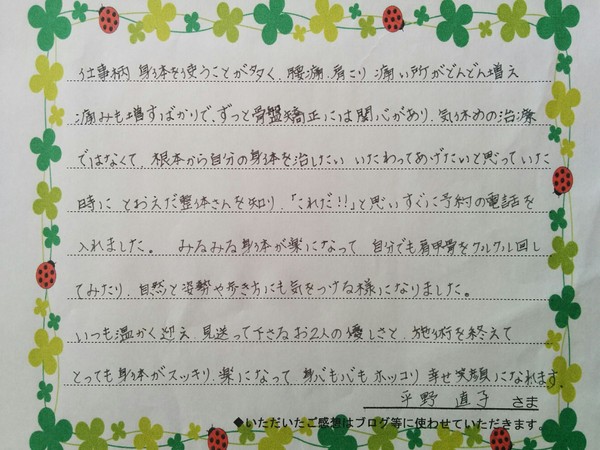 仕事柄 身体を使うことが多く、腰痛、肩こり、痛い所がどんどん増え
痛みも増すばかりで、ずっと骨盤矯正には関心があり、気休めの治療
ではなくて、根本から自分の身体を治したい いたわってあげたいと思っていた
時に とおえだ整体さんを知り、「これだ!!」と思いすぐに予約の電話を
入れました。 みるみる身体が楽になって 自分でも肩甲骨をクルクル回し
てみたり、自然と姿勢や歩き方にも気をつける様になりました。
いつも温かく迎え 見送って下さるお2人の優しさと、施術を終えて
とっても身体がスッキリ、楽になって 身も心もホッコリ 幸せ笑顔になれます。
平野 直子 さま
◆いただいたご感想はブログ等に使わせていただきます。